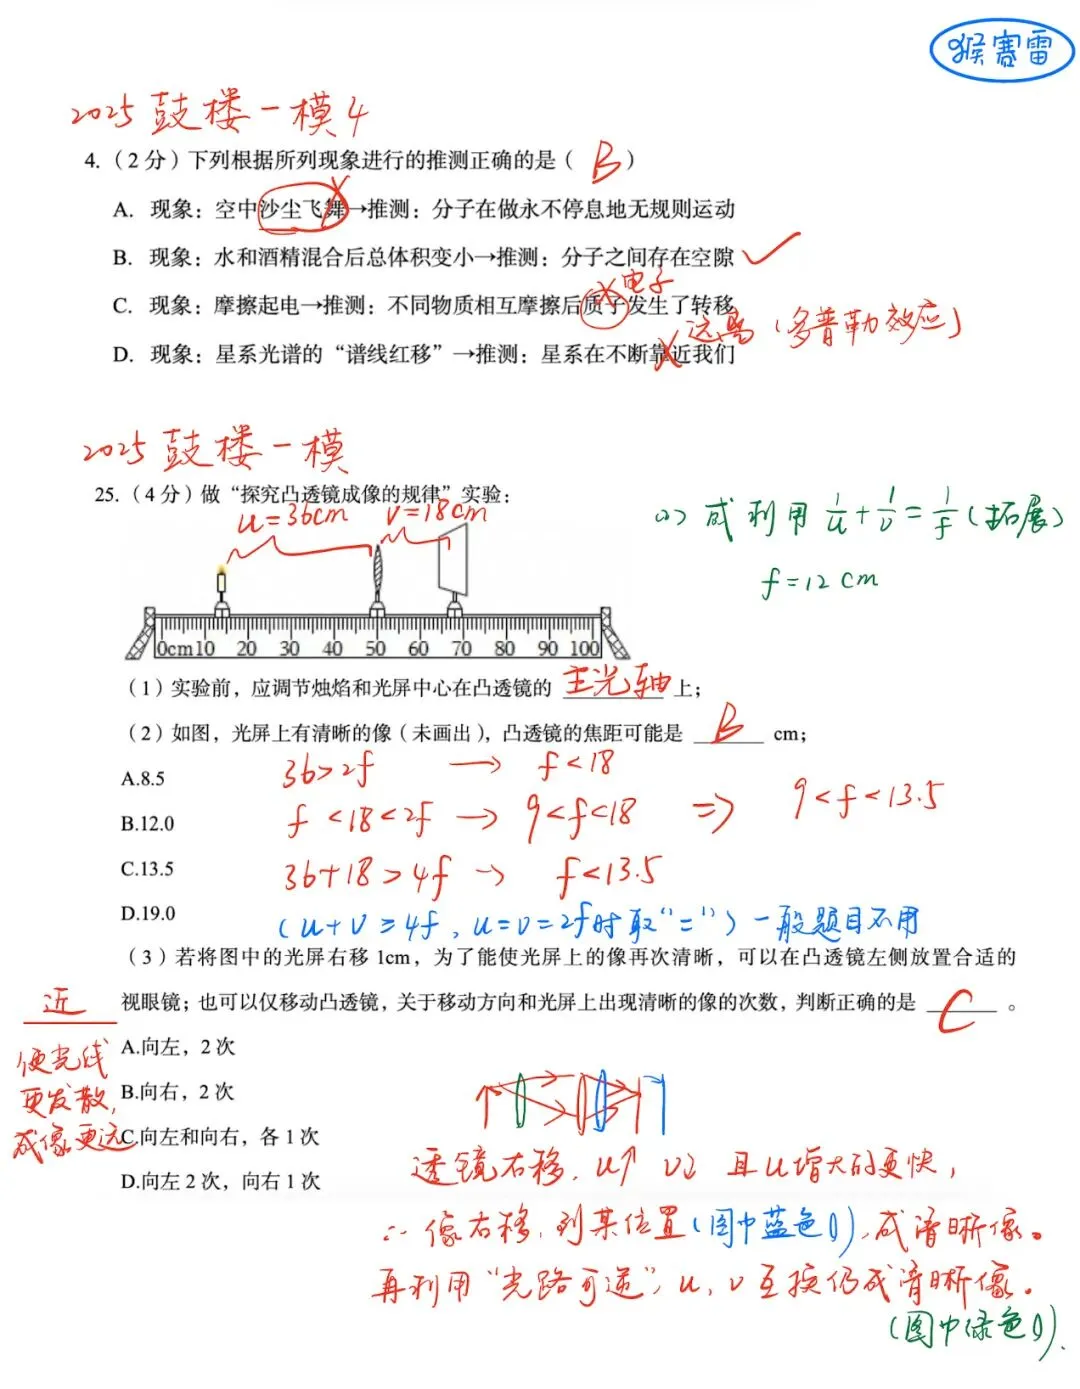 猴赛雷
2025 鼓楼一模 4
4.（2 分）下列根据所列现象进行的推测正确的是（ B ）
A. 现象：空中沙尘飞舞→推测：分子在做永不停息地无规则运动
B. 现象：水和酒精混合后总体积变小→推测：分子之间存在空隙
电子
C. 现象：摩擦起电→推测：不同物质相互摩擦后质子发生了转移
远离（多普勒效应）
D. 现象：星系光谱的“谱线红移”→推测：星系在不断靠近我们
2025 鼓楼一模
25.（4 分）做“探究凸透镜成像的规律”实验：
u=36cm v=18cm
(2) 或利用 1/u + 1/v = 1/f (拓展)
f=12 cm
0cm10 20 30 40 50 60 70 80 90 100
（1）实验前，应调节烛焰和光屏中心在凸透镜的 主光轴 上；
（2）如图，光屏上有清晰的像（未画出），凸透镜的焦距可能是 B cm；
A.8.5 36>2f → f<18
B.12.0 f<18<2f → 9<f<18 ⇒ 9<f<13.5
C.13.5 36+18>4f → f<13.5
D.19.0 (u+v≥4f，u=v=2f时取“=”) 一般题目不用
（3）若将图中的光屏右移 1cm，为了能使光屏上的像再次清晰，可以在凸透镜左侧放置合适的
近 视眼镜；也可以仅移动凸透镜，关于移动方向和光屏上出现清晰的像的次数，判断正确的是 C 。
使光线
更发散，
成像更远
A.向左，2 次
B.向右，2 次
C.向左和向右，各 1 次
D.向左 2 次，向右 1 次
透镜右移，u↑ v↓ 且u增大的更快，
∴像右移，到某位置(图中蓝色)，成清晰像。
再利用“光路可逆”，u、v互换仍成清晰像。
(图中绿色).